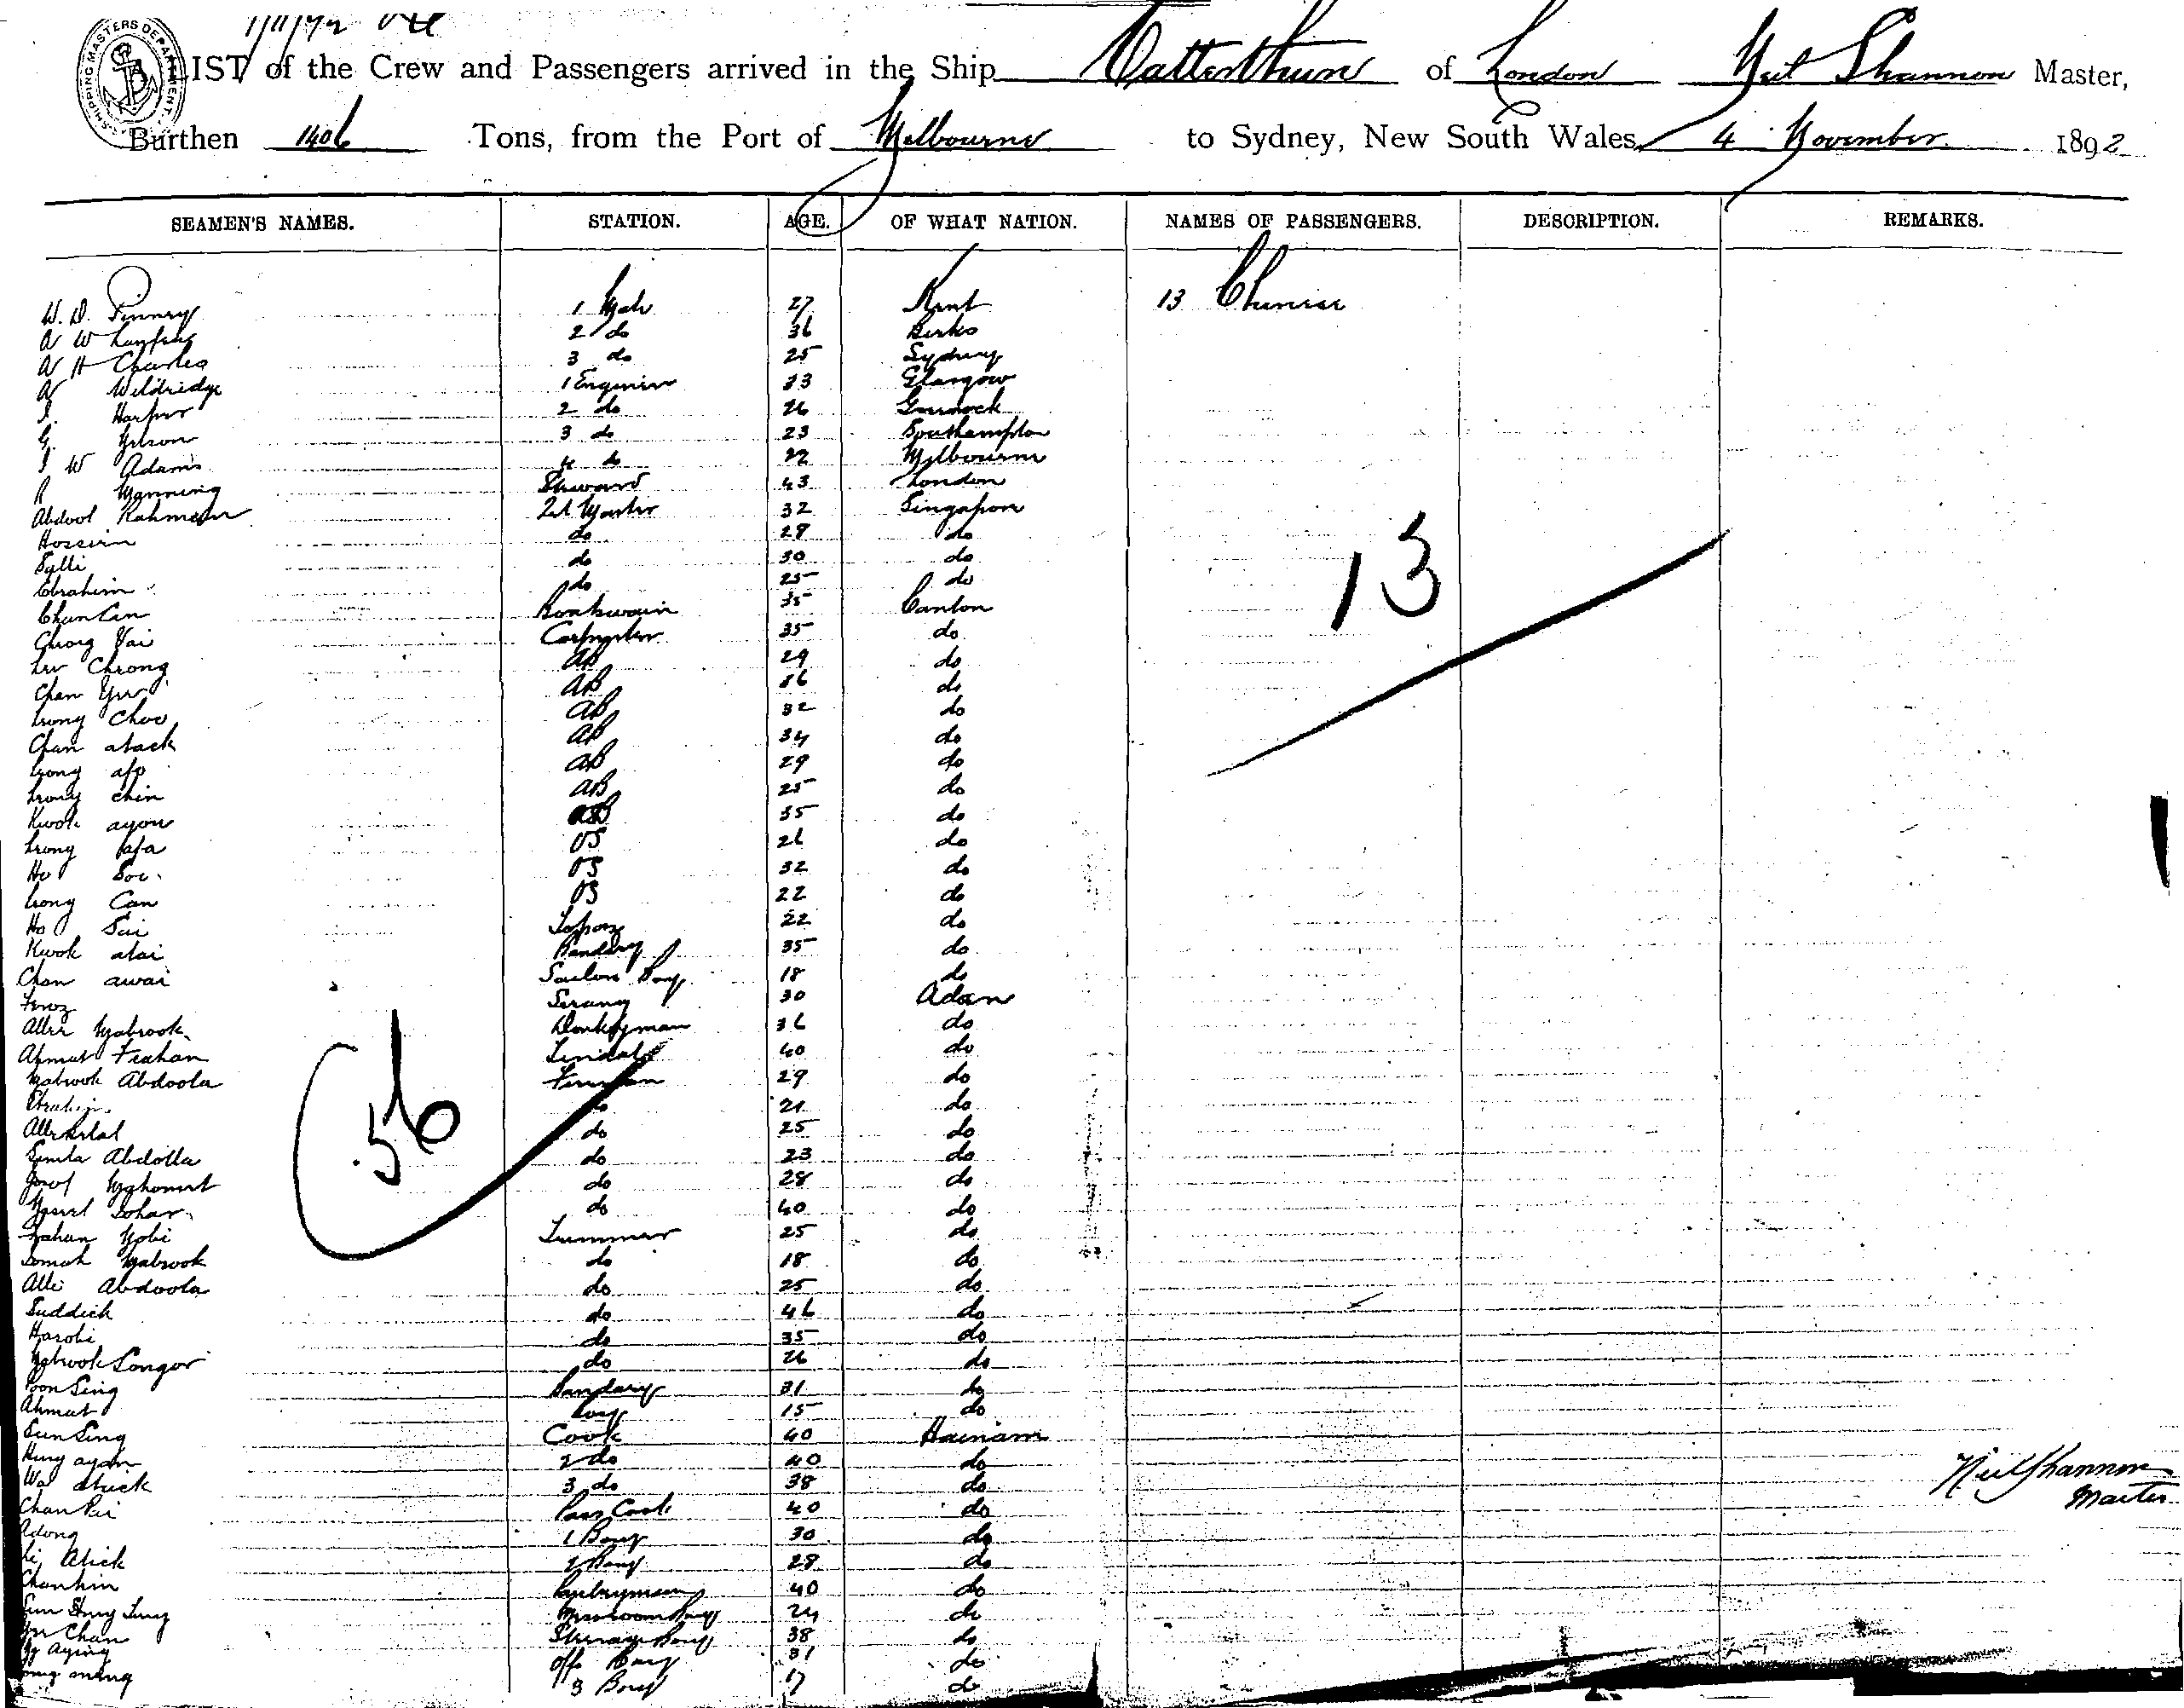 SHIPPING MASTERS DEPARTMENT
LIST of the Crew and Passengers arrived in the Ship Catterthun of London Neil Shannon Master,
Burthen 1406 Tons, from the Port of Melbourne to Sydney, New South Wales, 4 November 1892
SEAMEN'S NAMES. STATION. AGE. OF WHAT NATION. NAMES OF PASSENGERS. DESCRIPTION. REMARKS.
W. D. Pinney 1 Mate 27 Kent 13 Chinese
A W 2 do 36 Berks
A H Charles 3 do 25 Sydney
A Wildridge 1 Engineer 33 Glasgow
J. Harper 2 do 26 Gourock
G. Gilson 3 do 23 Southampton
J W Adams 4 do 22 Melbourne
R Manning Steward 43 London
Abdool Rahman 32 Singapore
Hossein do 28 do
do 30 do
Ebrahim do 25 do
Chun Can Boatswain 35 Canton
Cheong Yai Carpenter 35 do
Lee Cheong AB 29 do
Chan Yew AB 36 do
Leong Choo AB 32 do
Chan atack AB 34 do
Leong AB 29 do
Leong chin AB 25 do
Kwok ayou AB 35 do
Leong OS 26 do
Ho Soo OS 32 do
Leong Can OS 22 do
Ho Sai 22 do
Kwok atai Bandary 35 do
Chan awai Saloon Boy 18 do
Feroz Serang 30 Adan
Allee Mabrook Donkeyman 36 do
Ahmut Frahan Tindal 40 do
Mabrook Abdoola Fireman 29 do
do 21 do
do 25 do
Abdolla do 23 do
do 28 do
do 40 do
Nobi Trimmer 25 do
Mabrook do 18 do
Alli Abdoola do 25 do
Suddick do 46 do
Harobi do 35 do
Mabrook Songor do 26 do
Poon Sing Bandary 31 do
Ahmut boy 15 do
Sun Sing Cook 40 Hainam
Hung ayan 2 do 40 do
3 do 38 do
Chan Pai Pass Cook 40 do
Adong 1 Boy 30 do
Atick 2 Boy 28 do
Pantryman 40 do
Messroom Boy 24 do
Chan Steerage Boy 38 do
Aying Offs Boy 31 do
3 Boy 17 do
13
56
Neil Shannon
Master